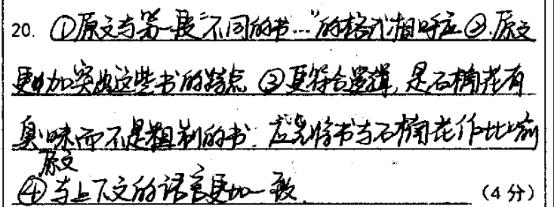 20. ①原文与第一段“不同的书…”的格式相呼应 ②原文
更加突出这些书的特点 ③更符合逻辑,是石楠花有
臭味而不是粗制的书,应先将书与石楠花作比喻
原文
④与上下文的语言更加一致. (4分)